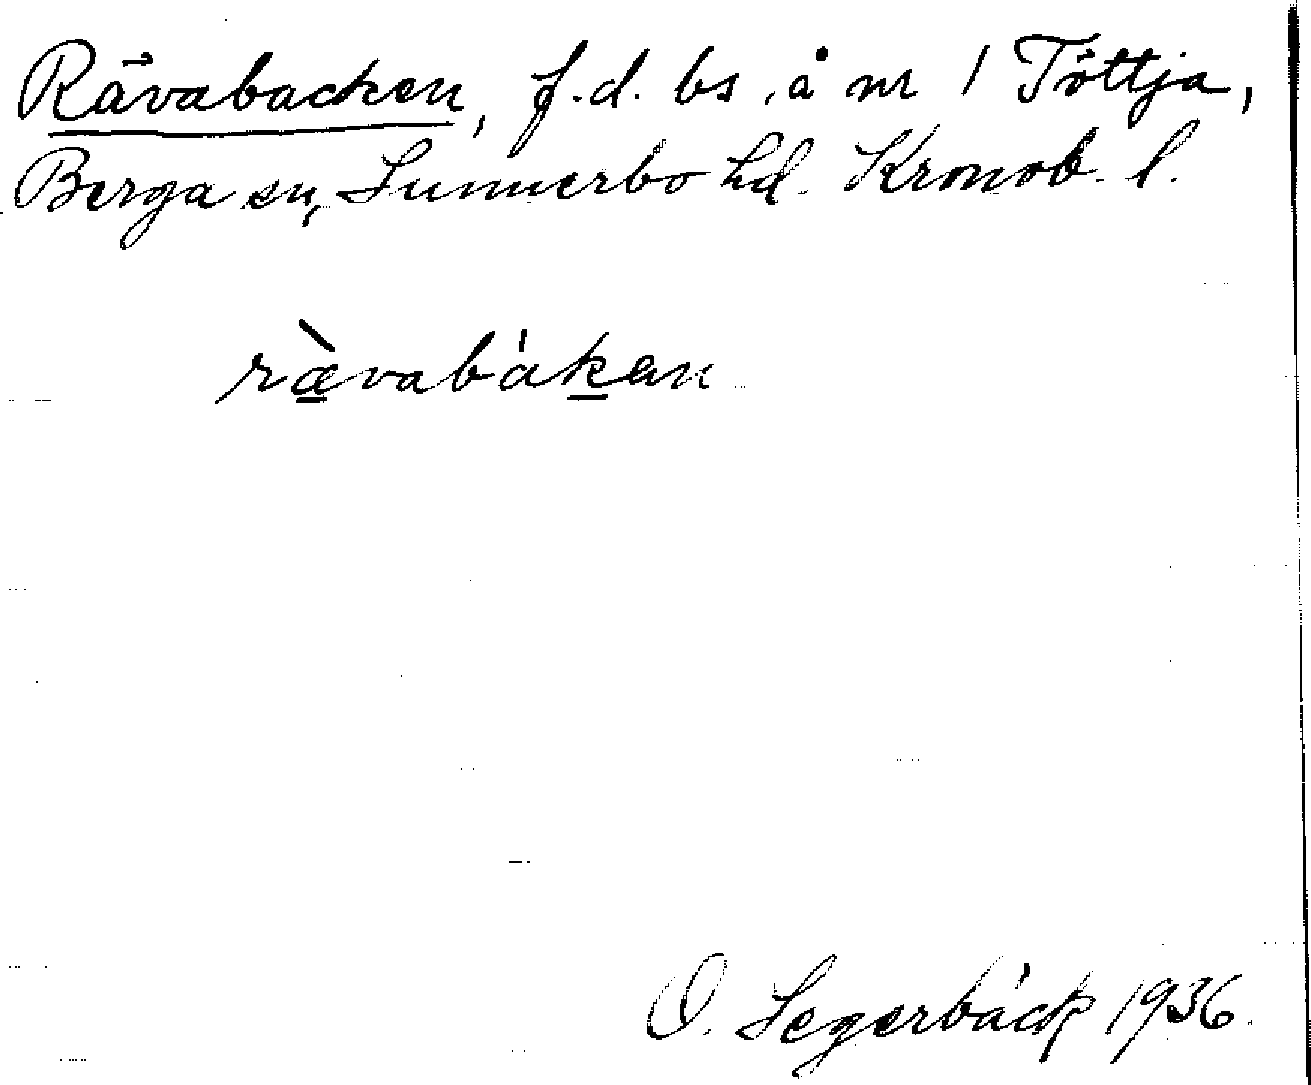 Rävabacken, f.d. bs å nr 1 Töttja,
Berga sn, Sunnerbo hd. Kronob. l.
ræ̀vabákan
O. Segerbäck 1936.